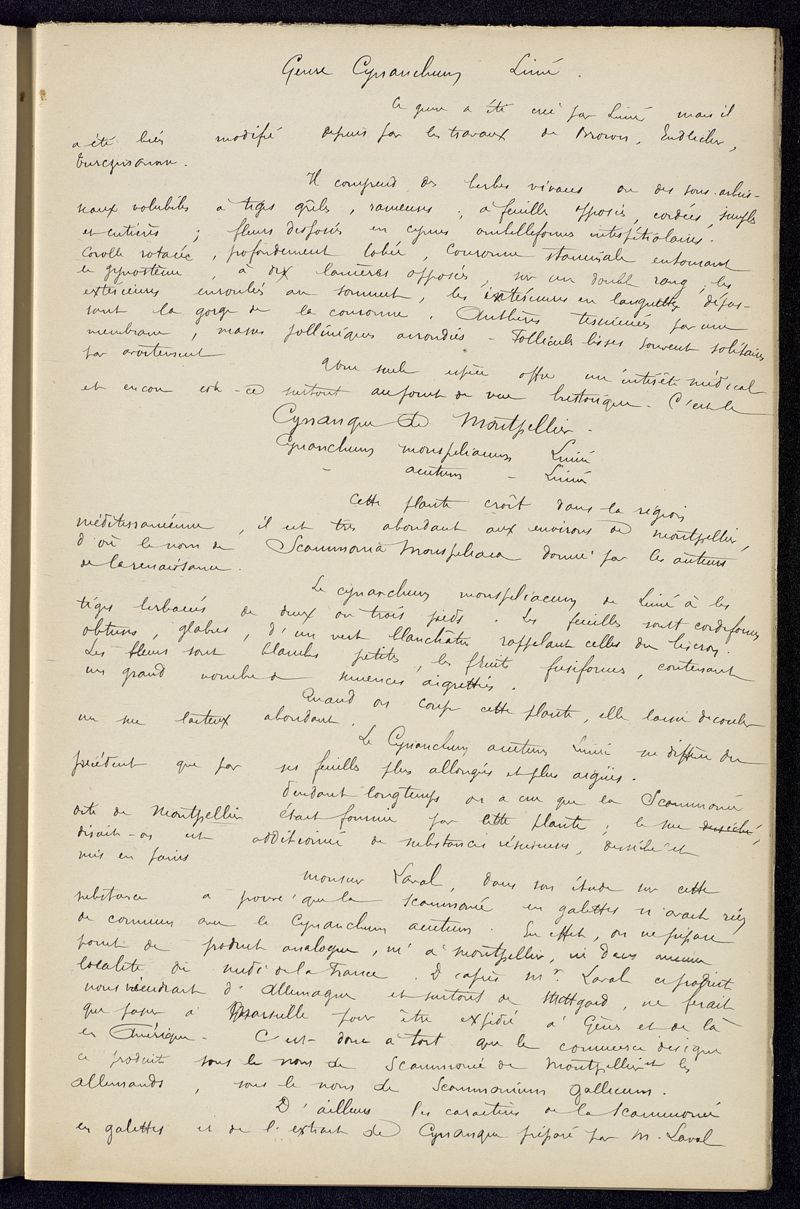 Genre Cynanchum Linné.
Ce genre a été créé par Linné mais il
a été très modifié depuis par les travaux de Brown, Endlicher,
Turczaninow.
Il comprend des herbes vivaces ou des sous-arbris-
seaux volubiles à tiges grêles, rameuses ; à feuilles opposées, cordées, simples
et entières ; fleurs disposées en cymes ombelliformes interpétiolaires.
Corolle rotacée, profondément lobée, couronne staminale entourant
le gynostème, à dix lanières opposées, sur un double rang ; les
extérieures enroulées au sommet, les intérieures en languettes dépas-
sant la gorge de la couronne. Anthères terminées par une
membrane, masses polliniques arrondies - Follicules lisses souvent solitaires
par avortement
Une seule espèce offre un intérêt médical
et encore est-ce surtout au point de vue historique - C'est le
Cynanque de Montpellier -
Cynanchum monspeliacum Linné
- acutum - Linné
Cette plante croît dans la région
méditerranéenne, il est très abondant aux environs de Montpellier,
d'où le nom de Scammonia Monspeliaca donné par les auteurs
de la renaissance.
Le cynanchum monspeliacum de Linné à les
tiges herbacées de deux ou trois pieds. Les feuilles sont cordiformes
obtuses, glabres, d'un vert blanchâtre rappelant celles du liseron.
Les fleurs sont blanches petites, les fruits fusiformes, contenant
un grand nombre de semences aigrettées.
Quand on coupe cette plante, elle laisse découler
un suc laiteux abondant.
Le Cynanchum acutum Linné ne diffère du
précédent que par ses feuilles plus allongées et plus aigües.
Pendant longtemps on a cru que la Scammonée
dite de Montpellier était fournie par cette plante ; le suc desséché,
disait-on est additionné de substances résineuses, desséché et
mis en pains
Monsieur Laval, dans son étude sur cette
substance a prouvé que la scammonée en galettes n'avait rien
de commun avec le Cynanchum acutum. En effet, on ne prépare
point de produit analogue, ni à Montpellier, ni dans aucune
localité du midi de la France. D'après Mr Laval ce produit
nous viendrait d'Allemagne et surtout de Stuttgard, ne ferait
que passer à Marseille pour être expédié à Gênes et de là
en Amérique. C'est donc à tort que le commerce désigne
ce produit sous le nom de Scammonée de Montpellier et les
allemands, sous le nom de Scammonium gallicum.
D'ailleurs les caractères de la Scammonée
en galettes et de l'extrait de Cynanque préparé par M. Laval